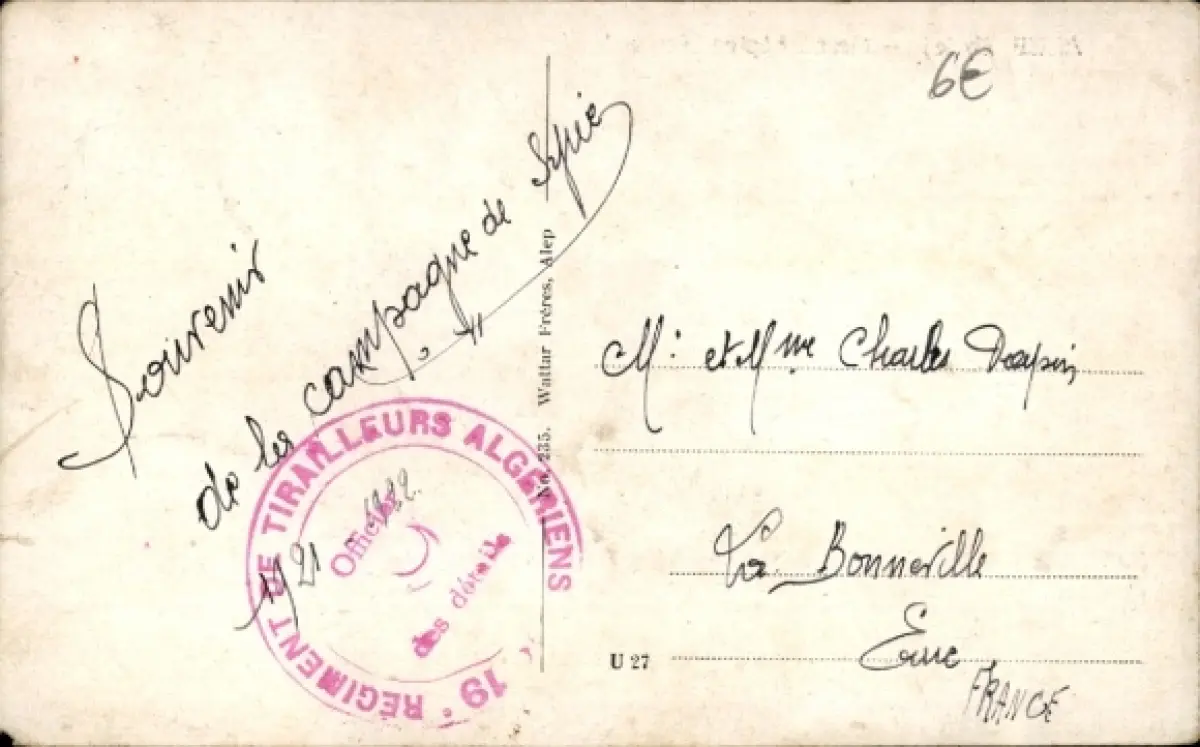 6€
Souvenir
de la campagne de Syrie
1921 - 1922.
19e RÉGIMENT DE TIRAILLEURS ALGÉRIENS
Officier
des détails
No. 235. Wattar Frères, Alep
M. et Mme Charles
La Bonneville
Eure
FRANCE
U 27